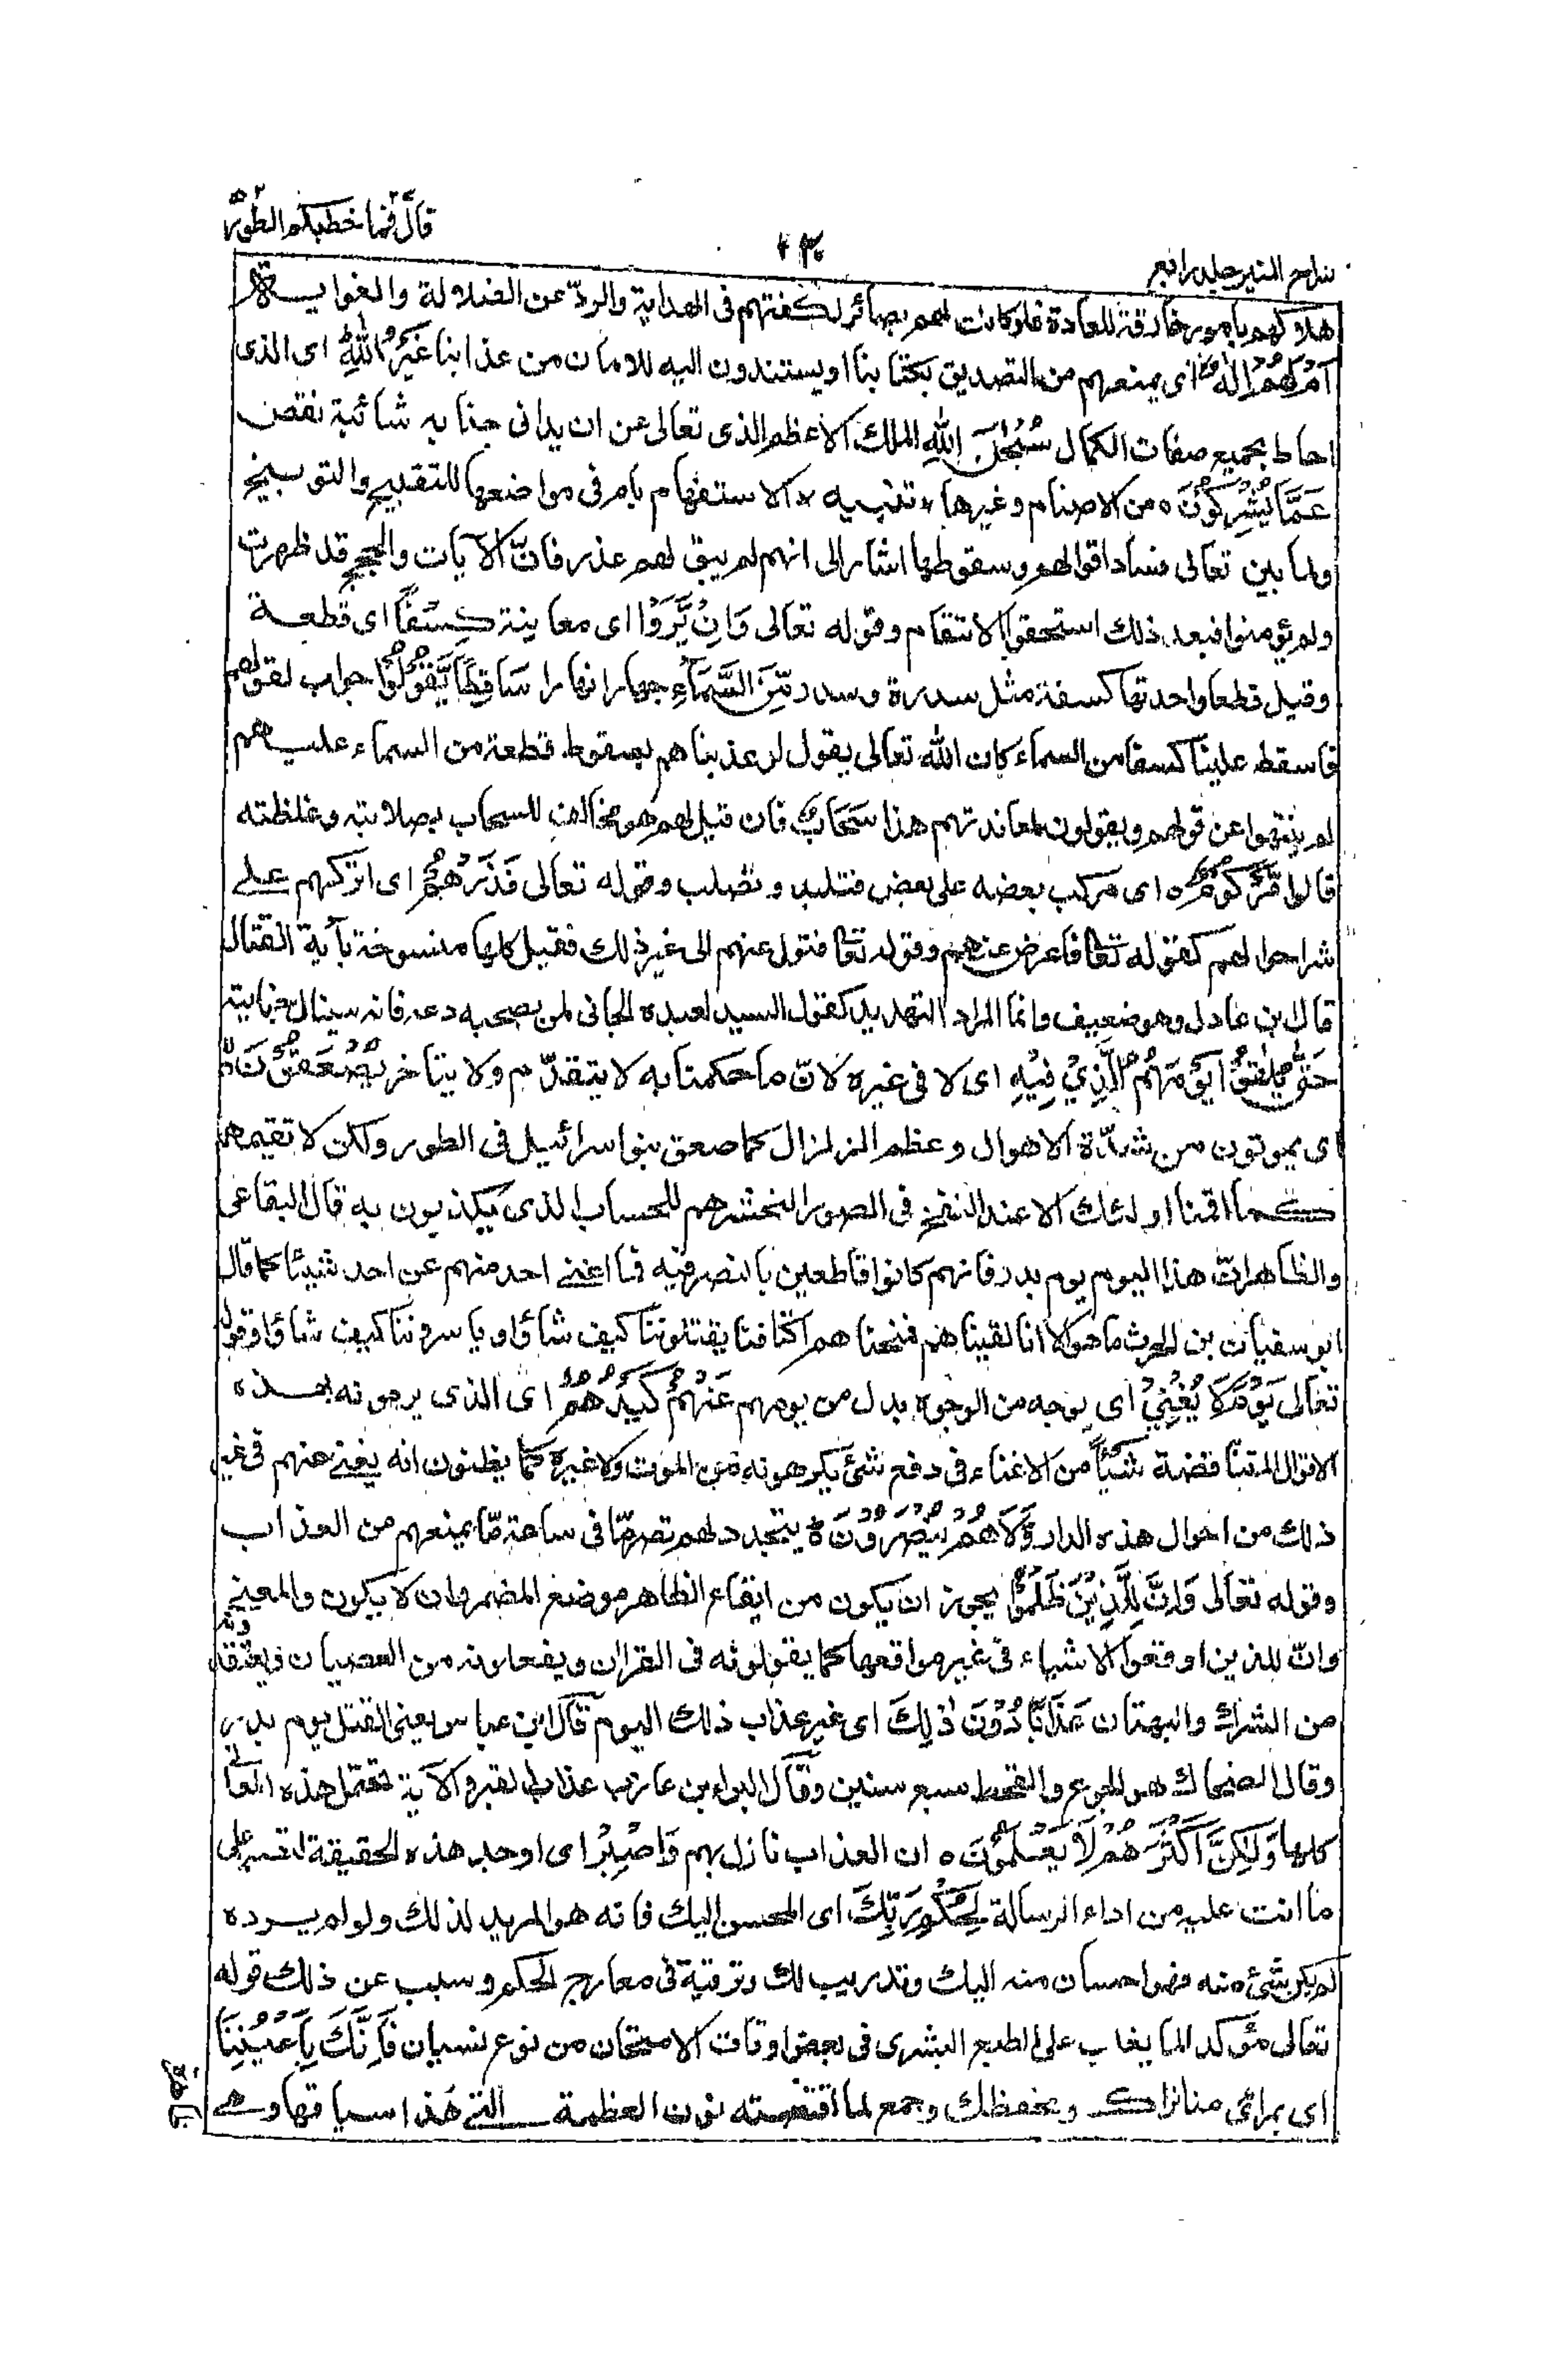 قال فما خطبكم الطور
سراج المنير جلد رابع
هلاكهم بامور خارقة للعادة فلو كانت لهم بصائر لكفتهم فى الهداية والردّ عن الضلالة والغواية
اَمْ لَهُمْ اِلٰهٌ اى يمنعهم من التصديق بكتابنا او يستندون اليه للامان من عذابنا غَيْرُ اللّٰهِ اى الذى
احاط بجميع صفات الكمال سُبْحٰنَ اللّٰهِ الملك الاعظم الذى تعالى عن ان يدانى جنابه شائبة نقص
عَمَّا يُشْرِكُوْنَ ه من الاصنام وغيرها * تنبيه * الاستفهام بام فى مواضعها للتقبيح والتوبيخ
ولما بين تعالى فساد اقوالهم وسقوطها اشار الى انهم لم يبق لهم عذر فانّ الآيات والحجج قد ظهرت
ولم يؤمنوا فبعد ذلك استحقوا الانتقام وقوله تعالى وَاِنْ يَّرَوْا اى معاينة كِسْفًا اى قطعة
وقيل قطعا واحدتها كسفة مثل سدرة وسدر مِّنَ السَّمَآءِ جهارا نهارا سَاقِطًا يَّقُوْلُوْا جواب لقولهم
فاسقط علينا كسفا من السماء كان الله تعالى يقول لو عذبناهم بسقوط قطعة من السماء عليهم
لم ينتهوا عن قولهم ويقولون لمعاندتهم هذا سَحَابٌ فان قيل لهم هو مخالف للسحاب بصلابته وغلظته
قالوا مَّرْكُوْمٌ ه اى مركب بعضه على بعض فتلبد وتصلب وقوله تعالى فَذَرْهُمْ اى اتركهم على
شر احوالهم كقوله تعا فاعرض عنهم وقوله تعا فتول عنهم الى غير ذلك فقيل كلها منسوخة بآية القتال
قال ابن عادل وهو ضعيف وانما المراد التهديد كقول السيد لعبده الجانى لمن يصحبه دعه فانه سينال جنايته
حَتّٰى يُلٰقُوْا يَوْمَهُمُ الَّذِىْ فِيْهِ اى لا فى غيره لانّ ما حكمنا به لا يتقدّم ولا يتاخر يُصْعَقُوْنَ
اى يموتون من شدّة الاهوال وعظم الزلزال كما صعق بنو اسرائيل فى الطور ولكن لا نقيمهم
كما اقمنا اولئك الا عند النفخ فى الصور لنحشرهم للحساب الذى يكذبون به قال البقاعى
والظاهر انّ هذا اليوم يوم بدر فانهم كانوا قاطعين بالنصر فيه فما اغنى احد منهم عن احد شيئا كما قال
ابو سفيان بن الحرث ما هو الا انا لقيناهم فمنحناهم اكتافنا يقتلوننا كيف شاؤا وياسروننا كيف شاؤا وقوله
تعالى يَوْمَ لَا يُغْنِىْ اى بوجه من الوجوه بدل من يومهم عَنْهُمْ كَيْدُهُمْ اى الذى يرجونه بهذه
الاقوال المتناقضة شَيْئًا من الاغناء فى دفع شئ يكرهونه من الموت ولا غيره كما يظنون انه يغنى عنهم فى غير
ذلك من احوال هذه الدار وَّلَا هُمْ يُنْصَرُوْنَ يتجدد لهم نصر مّا فى ساعة مّا يمنعهم من العذاب
وقوله تعالى وَاِنَّ لِلَّذِيْنَ ظَلَمُوْا يجوز ان يكون من ايقاع الظاهر موضع المضمر وان لا يكون والمعنى
وانّ للذين اوقعوا الاشياء فى غير مواقعها كما يقولونه فى القران ويفعلونه من العصيان ويعتقدونه
من الشرك والبهتان عَذَابًا دُوْنَ ذٰلِكَ اى غير عذاب ذلك اليوم قال ابن عباس يعنى القتل يوم بدر
وقال الضحاك هو الجوع والقحط سبع سنين وقال البراء بن عازب عذاب القبر والآية تحتمل هذه المعانى
كلها وَلٰكِنَّ اَكْثَرَهُمْ لَا يَعْلَمُوْنَ ه ان العذاب نازل بهم وَاصْبِرْ اى اوجد هذه الحقيقة لتصبر على
ما انت عليه من اداء الرسالة لِحُكْمِ رَبِّكَ اى المحسن اليك فانه هو المريد لذلك ولو لم يرده
لم يكن شئ منه فهو احسان منه اليك وتدريب لك وترقية فى معارج الحكم وسبب عن ذلك قوله
تعالى مؤكدا لما يغلب على الطبع البشرى فى بعض اوقات الامتحان من نوع نسيان فَاِنَّكَ بِاَعْيُنِنَا
اى بمرأى منا نراك ونحفظك وجمع لما اقتضته نون العظمة التى هذا سياقها وهى